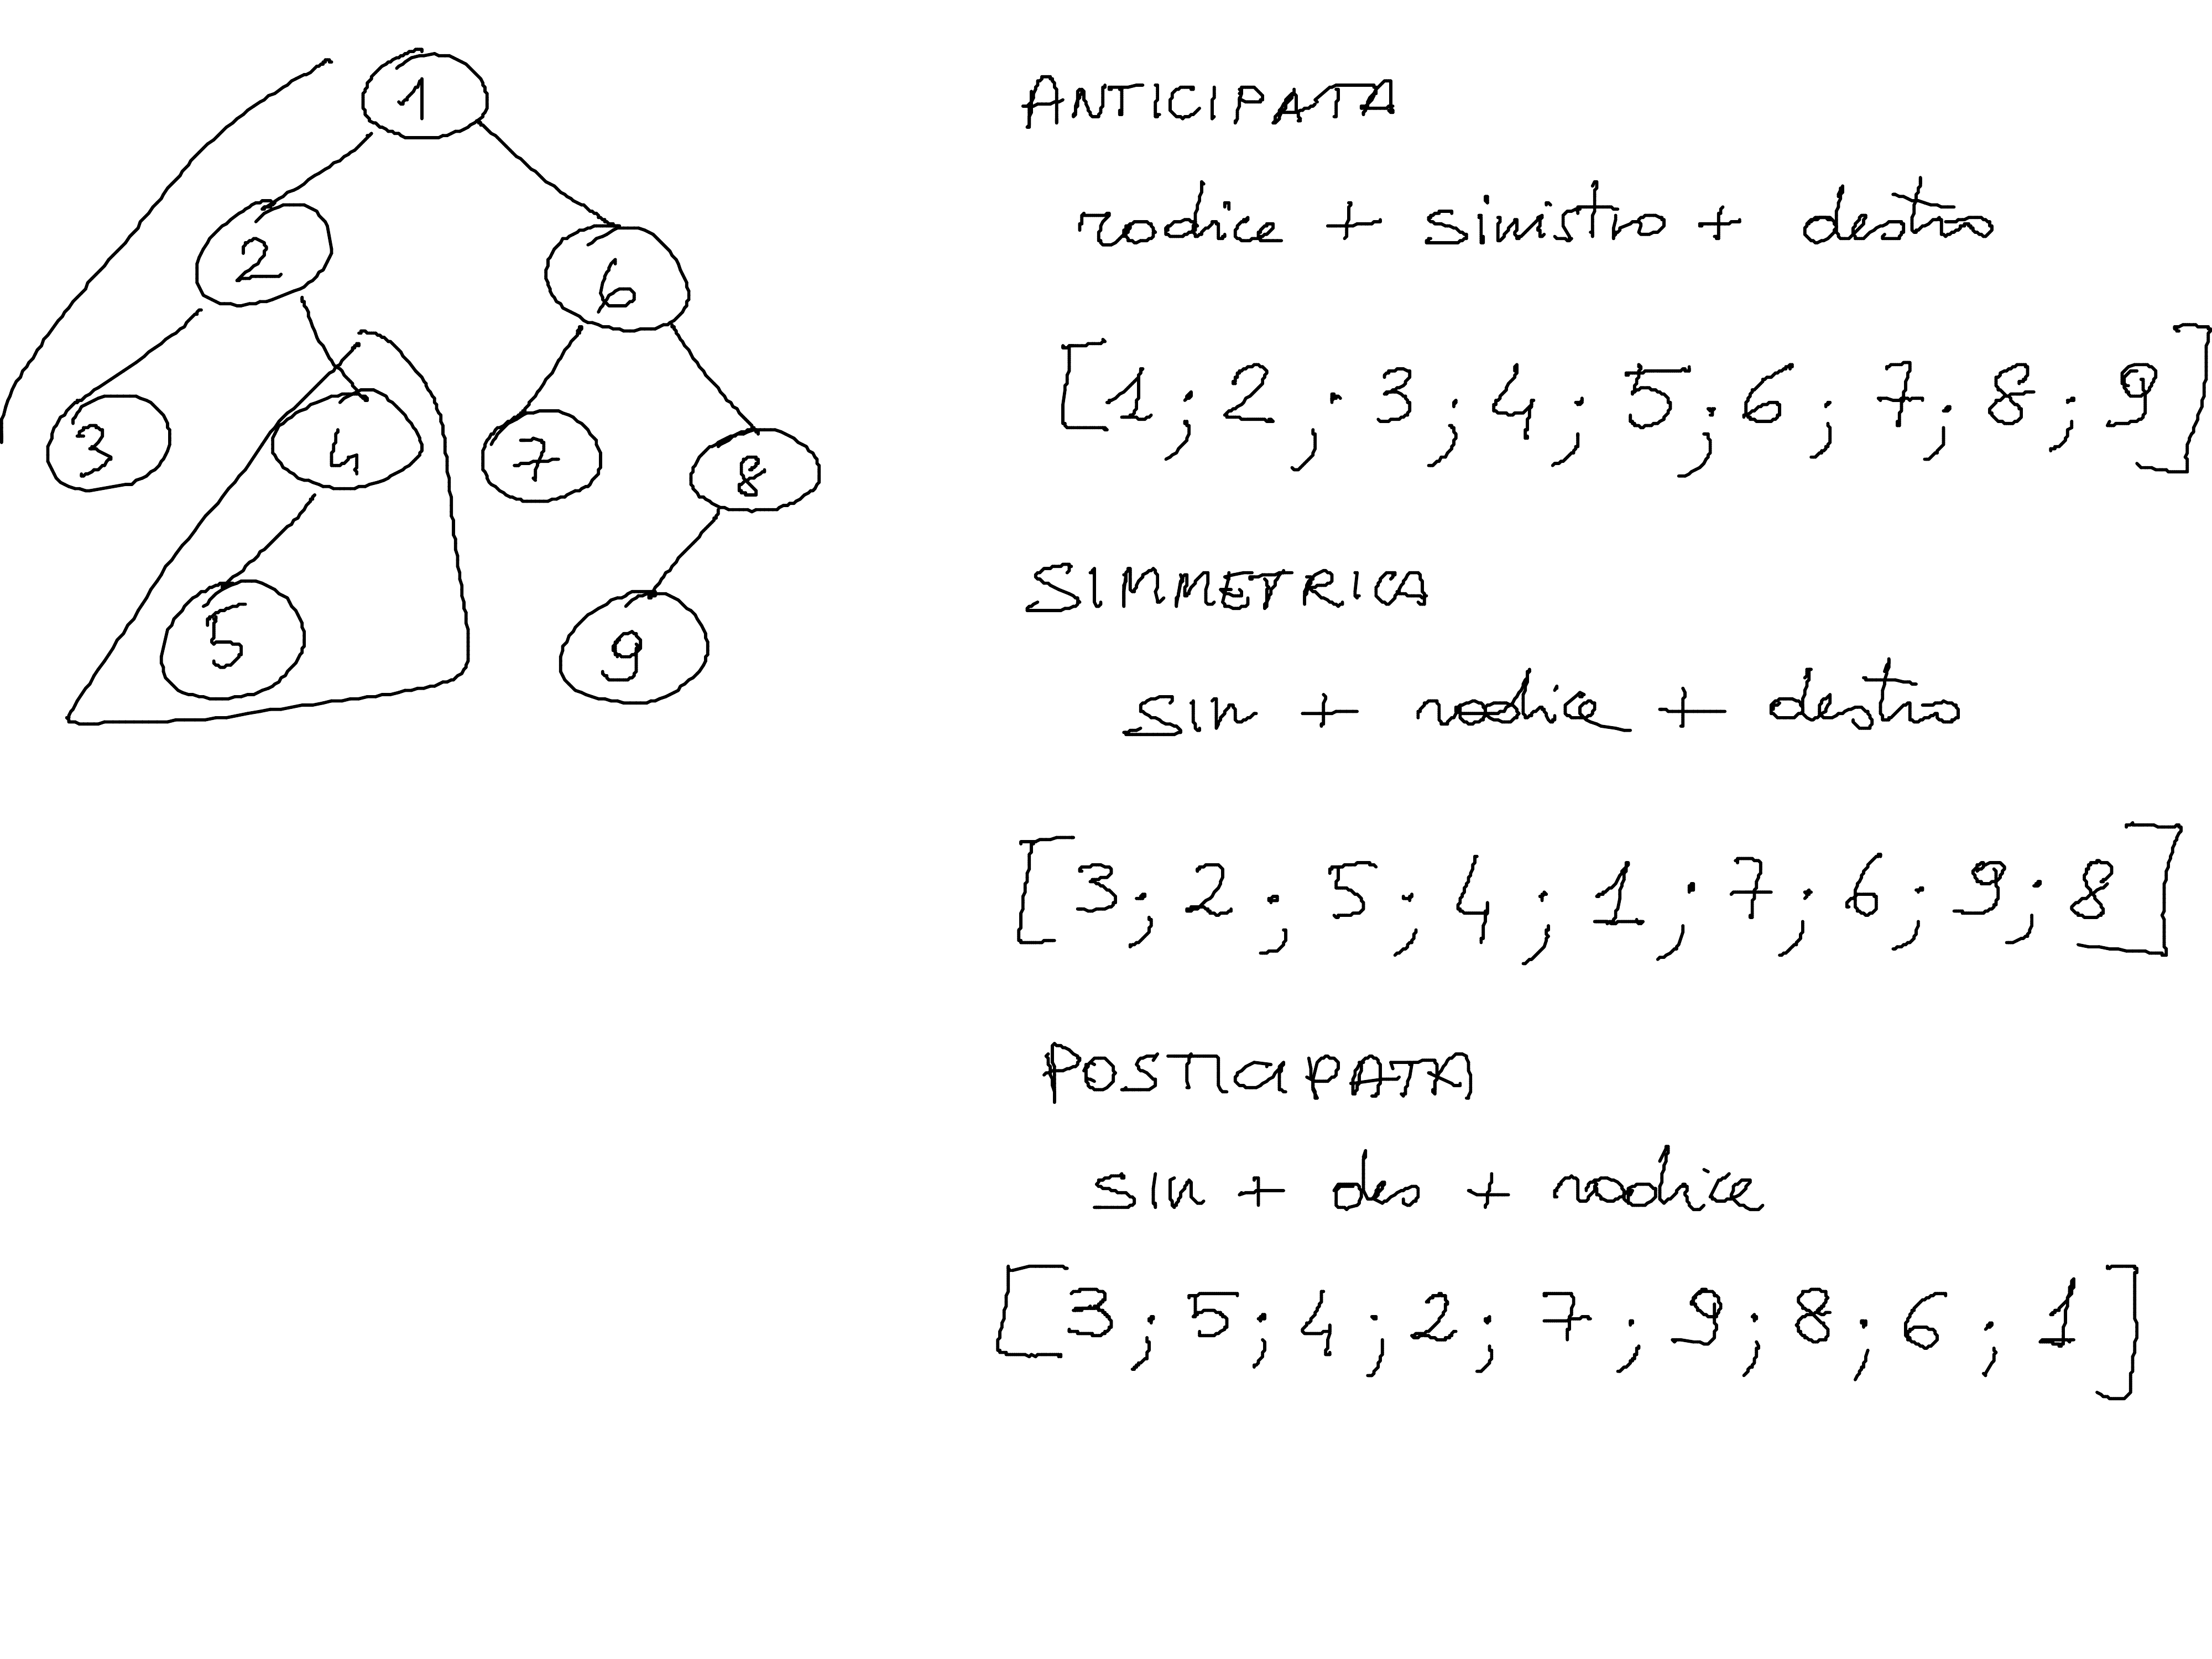 1
2
6
3
4
7
8
5
9
ANTICIPATA
radice + sinistro + destro
[1; 2; 3; 4; 5; 6; 7; 8; 9]
SIMMETRICA
sin + radice + destro
[3; 2; 5; 4; 1; 7; 6; 9; 8]
POSTICIPATA
sin + des + radice
[3; 5; 4; 2; 7; 9; 8; 6; 1]